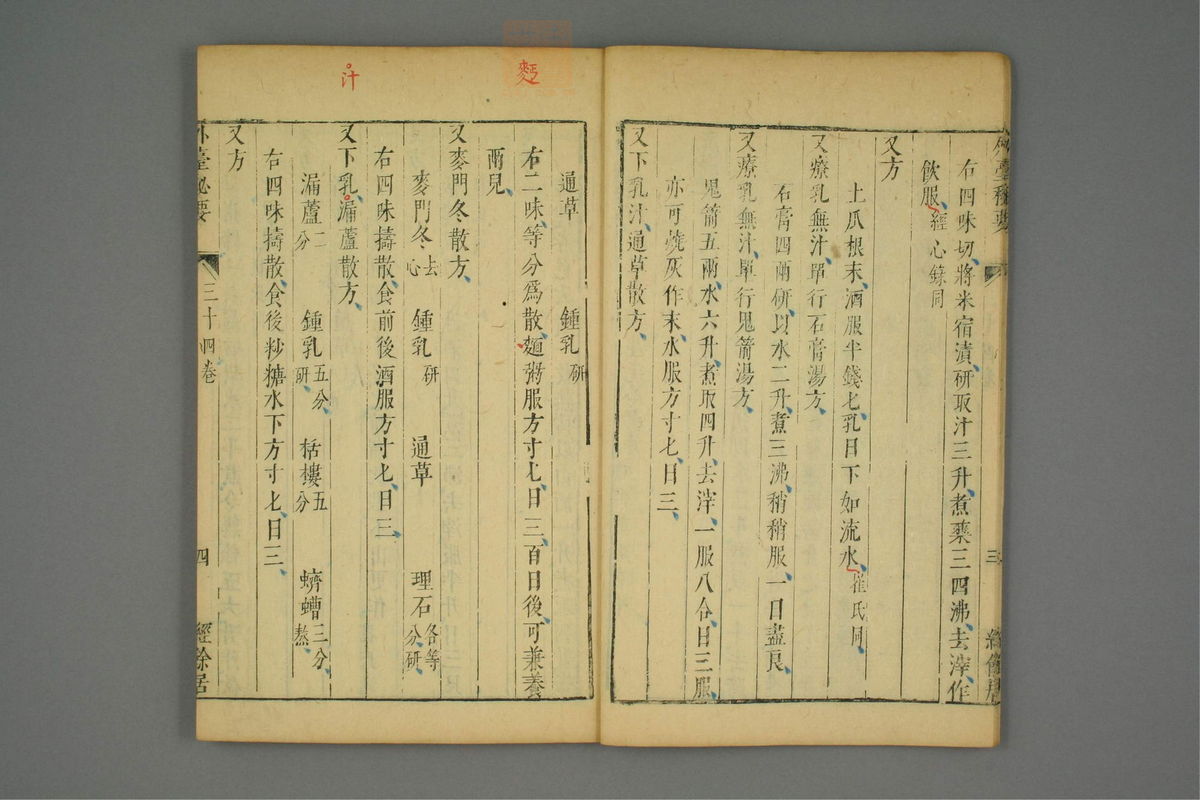 右四味切將米宿漬研取汁三升煮藥三四沸去滓作
飲服經心錄同
又方
土瓜根末酒服半錢匕乳日下如流水崔氏同
又療乳無汁單行石膏湯方
石膏四兩研以水二升煮三沸稍稍服一日盡良
又療乳無汁單行鬼箭湯方
鬼箭五兩水六升煮取四升去滓一服八合日三服
亦可燒灰作末水服方寸匕日三
又下乳汁通草散方
三
麫
汁
通草 鍾乳研
右二味等分爲散麵粥服方寸匕日三百日後可兼養
兩兒
又麥門冬散方
麥門冬去心 鍾乳研 通草 理石各等分研
右四味擣散食前後酒服方寸匕日三
又下乳漏蘆散方
漏蘆二分 鍾乳五分研 栝樓五分 蠐螬三分熬
右四味擣散食後粆糖水下方寸匕日三
又方
外臺祕要 三十四卷 四 經餘居